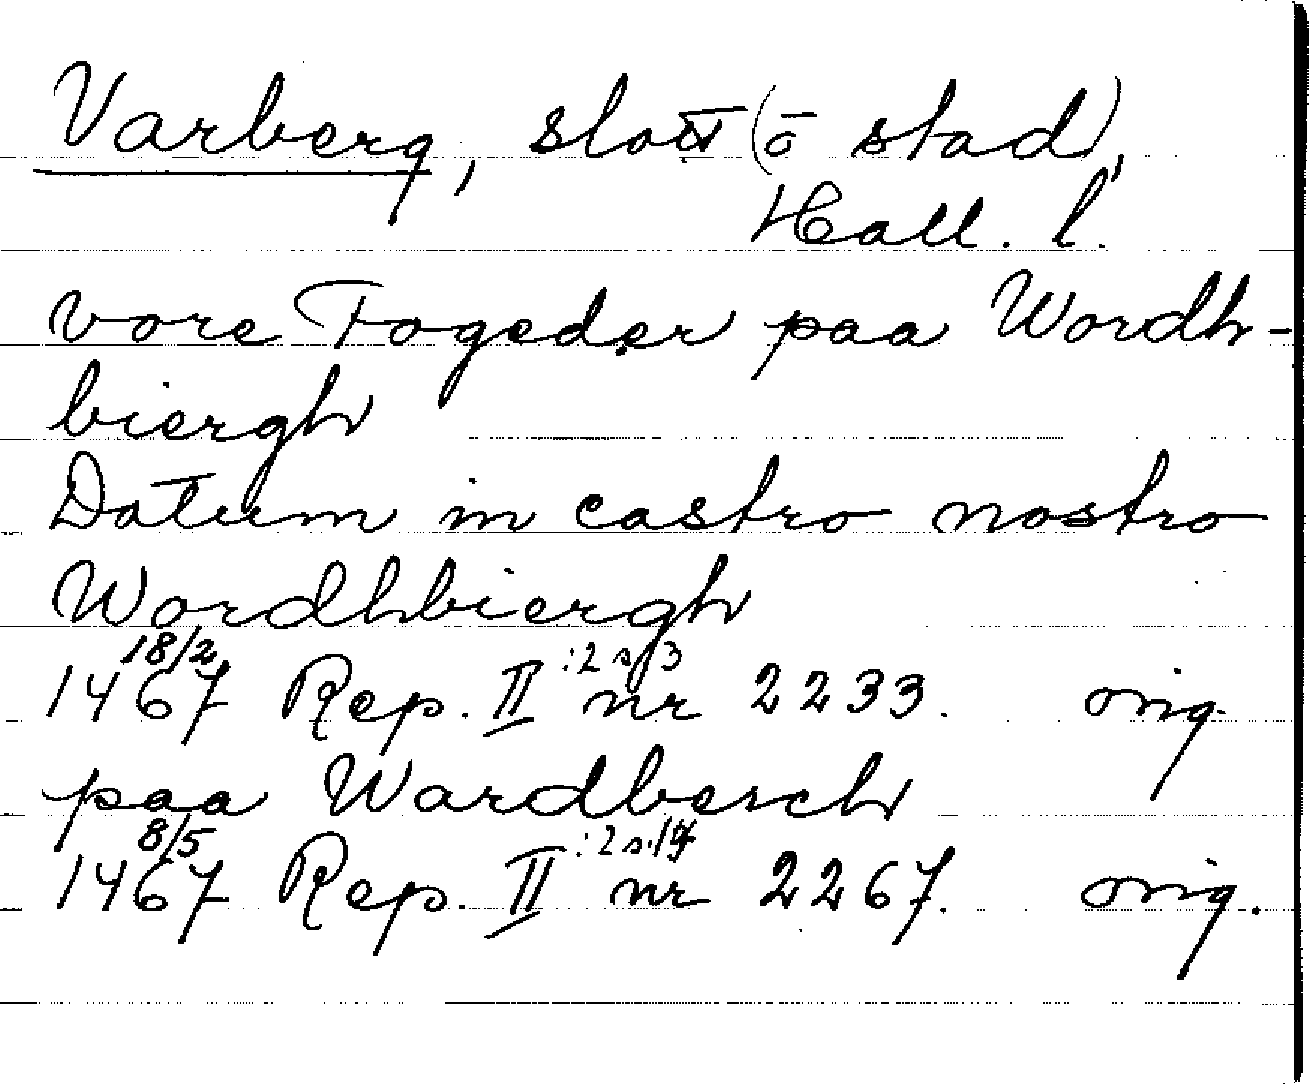 Varberg, slott (o stad),
Hall. l.
vore Fogeder paa Wordh-
biergh
Datum in castro nostro
Wordhbiergh
18/2 :2 s. 3
1467 Rep. II nr 2233. orig.
paa Wardberch
8/5 :2 s.
1467 Rep. II nr 2267. orig.